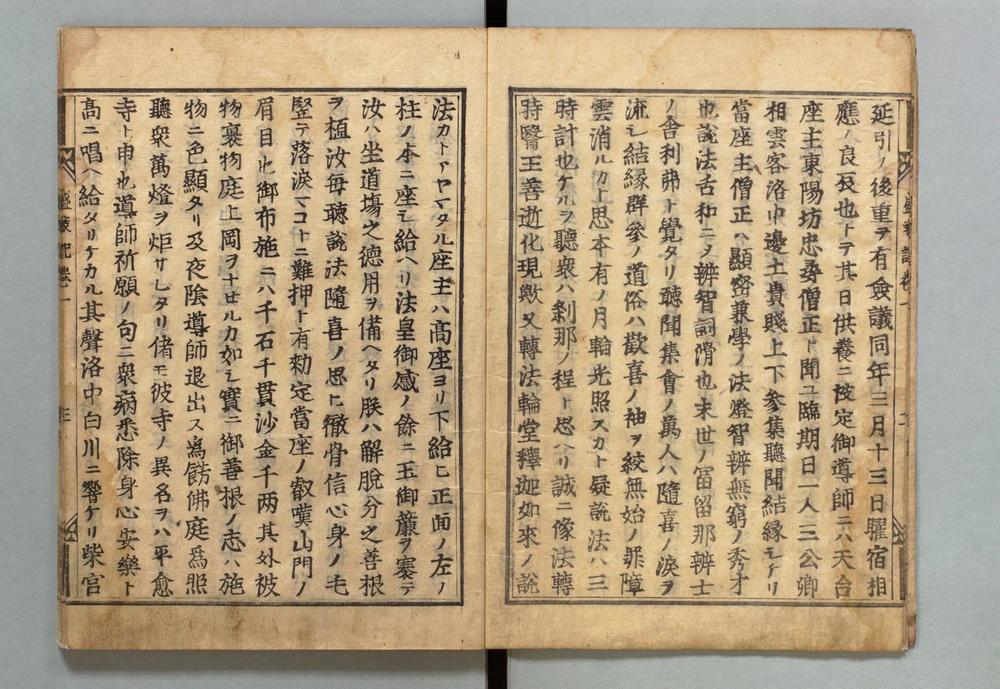 延引ノ後重テ有僉議同年三月十三日曜宿相
應ノ良辰也トテ其日供養ニ被定御導師ニハ天台
座主東陽坊忠尋僧正ト聞ユ臨期日一人三公卿
相雲客洛中邊土貴賤上下參集聽聞結縁シケリ
當座主僧正ハ顯密兼學ノ法燈智辨無窮ノ秀才
也説法舌和ニメ辨智詞滑也末世ノ冨留那辨士
ノ舎利弗ト覺タリ聽聞集會ノ萬人ハ隨喜ノ涙ヲ
流シ結縁群參ノ道俗ハ歡喜ノ袖ヲ絞無始ノ罪障
雲消ルカト思本有ノ月輪光照スカト疑説法ハ三
時計也ケルヲ聽衆ハ刹那ノ程ト思ヘリ誠ニ像法轉
時醫王善逝化現歟又轉法輪堂釋迦如來ノ説
法カトアヤマタル座主ハ高座ヨリ下給ヒ正面ノ左ノ
柱ノ本ニ座シ給ヘリ法皇御感ノ餘ニ玉御簾ヲ褰テ
汝ハ坐道塲之德用ヲ備ヘタリ朕ハ解脱分之善根
ヲ植汝毎聽説法隨喜ノ思ヒ徹骨信心身ノ毛
竪テ落涙マコトニ難押ト有勅定當座ノ叡嘆山門ノ
眉目也御布施ニハ千石千貫沙金千两其外被
物褁物庭上岡ヲナセルカ如シ實ニ御善根ノ志ハ施
物ニ色顯タリ及夜陰導師退出ス爲餝佛庭爲照
聽衆萬燈ヲ炬サレタリ偖モ彼寺ノ異名ヲハ平愈
寺ト申也導師祈願ノ句ニ衆病悉除身心安樂ト
高ニ唱ヘ給タリケカル其聲洛中白川ニ響ケリ柴宮